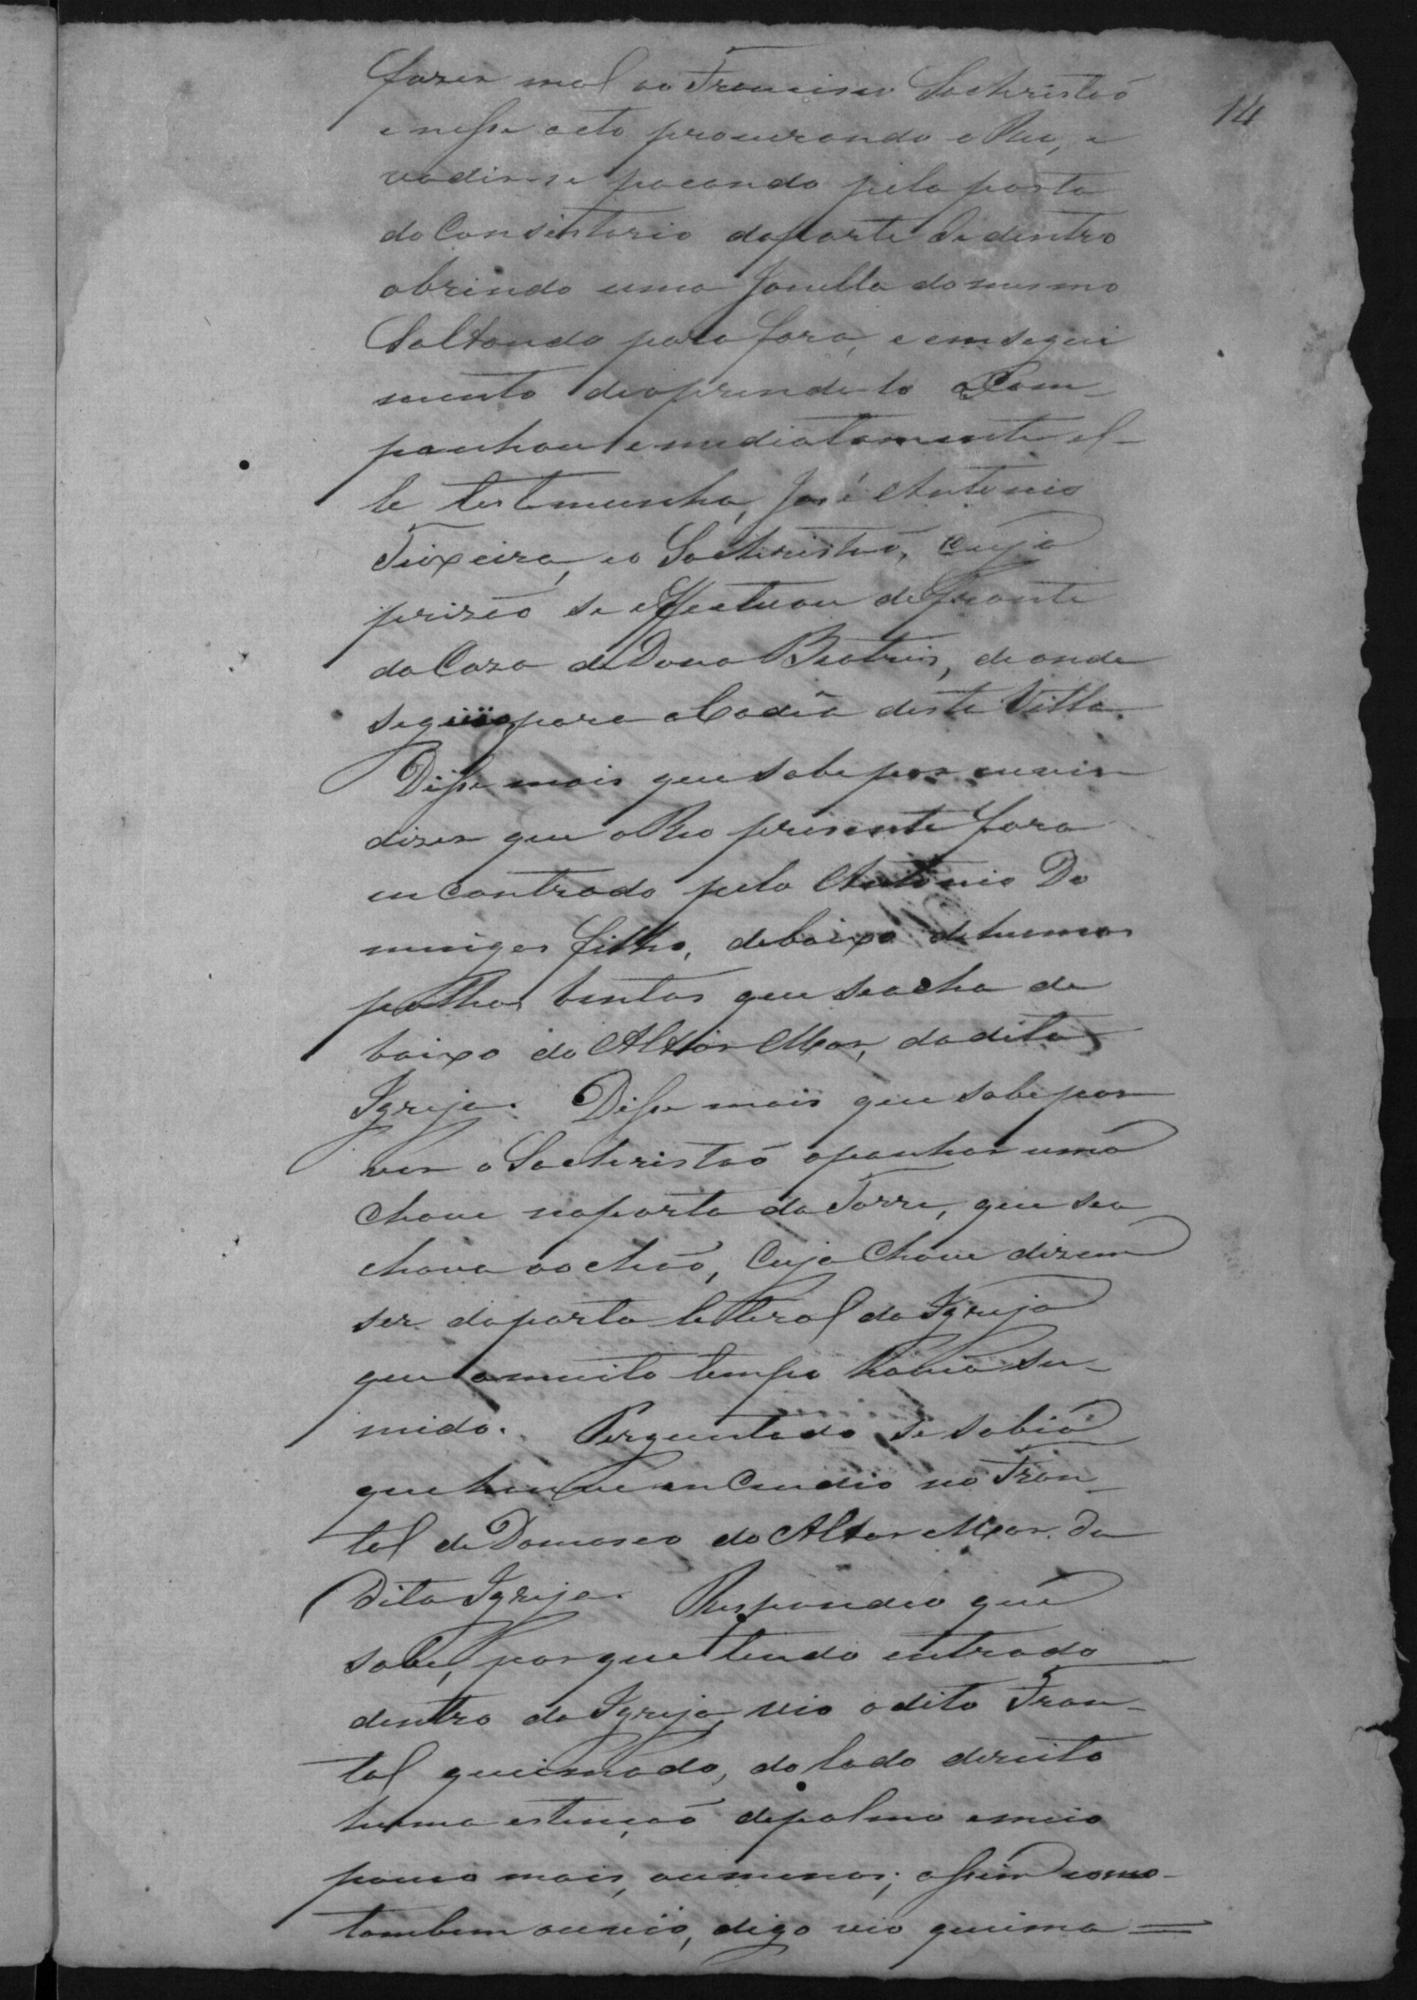 14
fazer mal ao Francisco Sachristaõ
e nesse acto procurando o Reu, e
vadirse pacando pela porta
do Consistorio da parte de dentro
abrindo uma Janella do mesmo
Saltando para fora, e em segui
mento de oprendelo acom-
panhou emediatamente el-
le testemunha, José Antonio
Teixeira, e o Sachristaõ, cuja
prizaõ se effectuou defronte
da Caza de Dona Beatris, de onde
seguio para a Cadêa desta Villa.
Disse mais que sabe por ouvir
dizer que o Reo presente fora
encontrado pelo Antonio Do
mingos filho, debaixo de humas
palhas bentas que se acha de
baixo do Altar Mor, da dita
Igreja. Disse mais que sabe por
ver o Sachristaõ apanhar uma
chave na porta da Torre, que sea
chava no chaõ, cuja Chave dizem
ser da porta leteral da Igreja
que a muito tempo havia su-
mido. Perguntado se sabia
que houve encendio no Fron-
tal de Damasco do Altar Mor da
Dita Igreja. Respondeo que
sabe, por que tendo entrado
dentro da Igreja, vio o dito Fron-
tal queimado, do lado direito
huma estençaõ de palmo emeio
pouco mais, ou menos; assim como
tambem ouvio, digo vio queima=